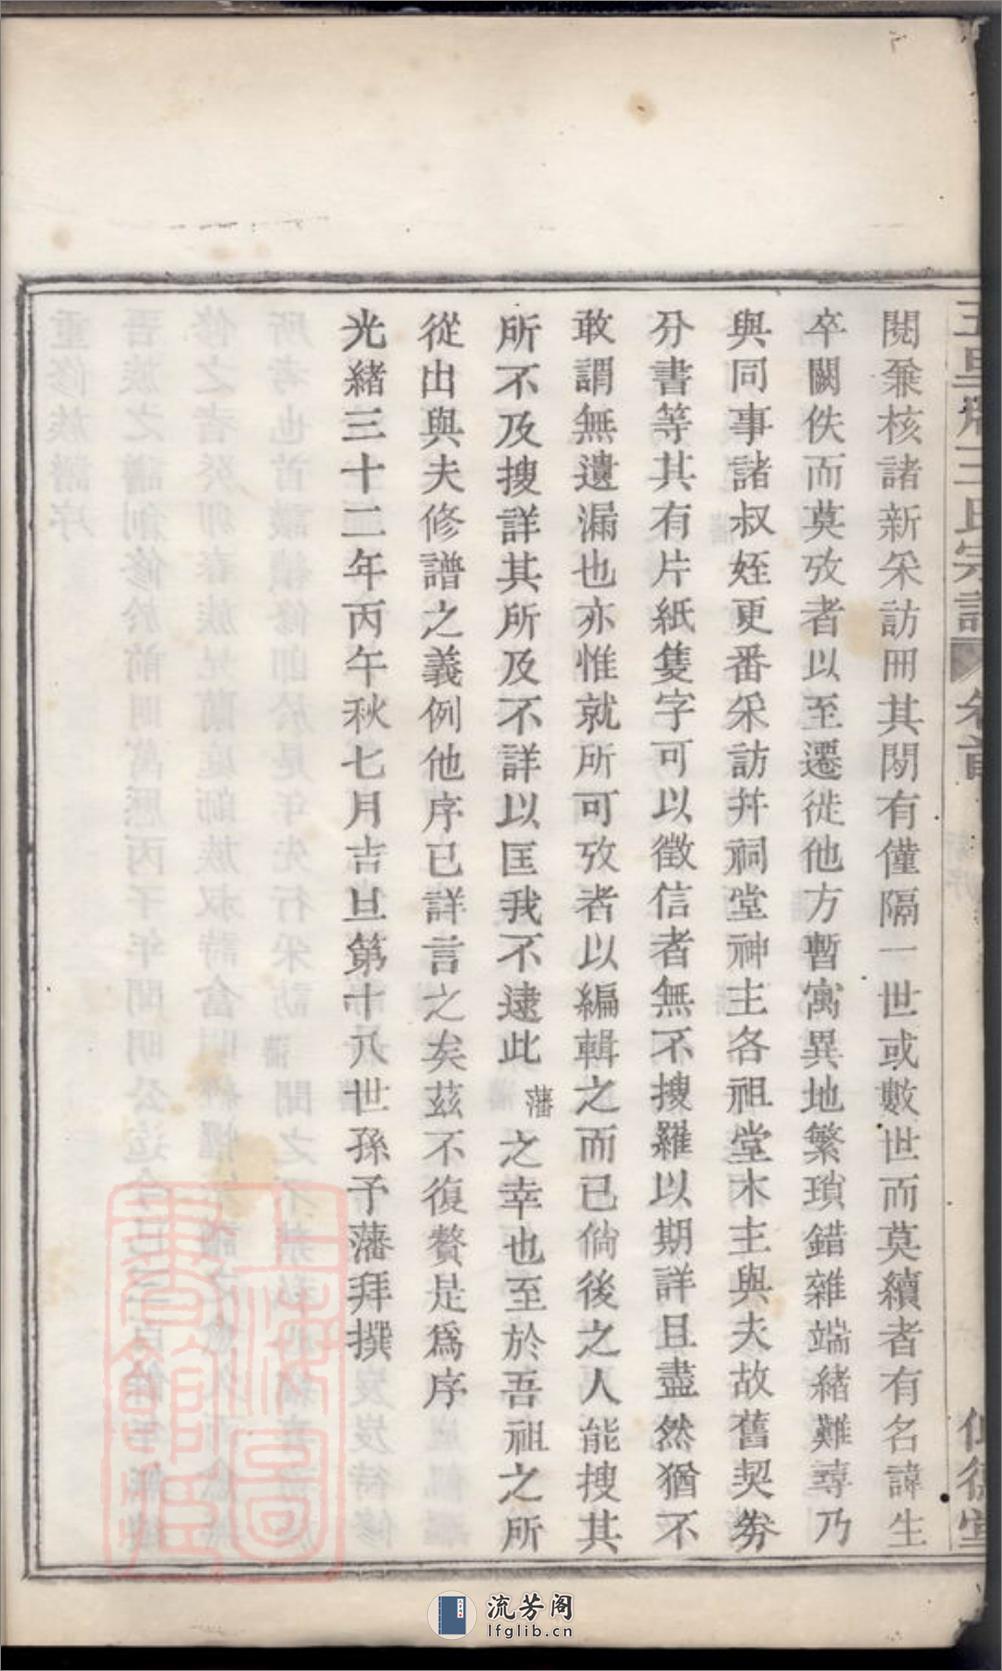 閱兼核諸新采訪冊其間有僅隔一世或數世而莫續者有名諱生
卒闕佚而莫攷者以至遷徙他方暫寓異地繁瑣錯雜端緒難尋乃
與同事諸叔姪更番采訪并祠堂神主各祖堂木主與夫故舊契劵
分書等其有片紙隻字可以徵信者無不搜羅以期詳且盡然猶不
敢謂無遺漏也亦惟就所可攷者以編輯之而已倘後之人能搜其
所不及搜詳其所及不詳以匡我不逮此藩之幸也至於吾祖之所
從出與夫修譜之義例他序已詳言之矣茲不復贅是爲序
光緒三十二年丙午秋七月吉旦第十八世孫予藩拜撰
王氏宗譜
卷首
上海圖書館藏
流芳阁
lfglib.cn